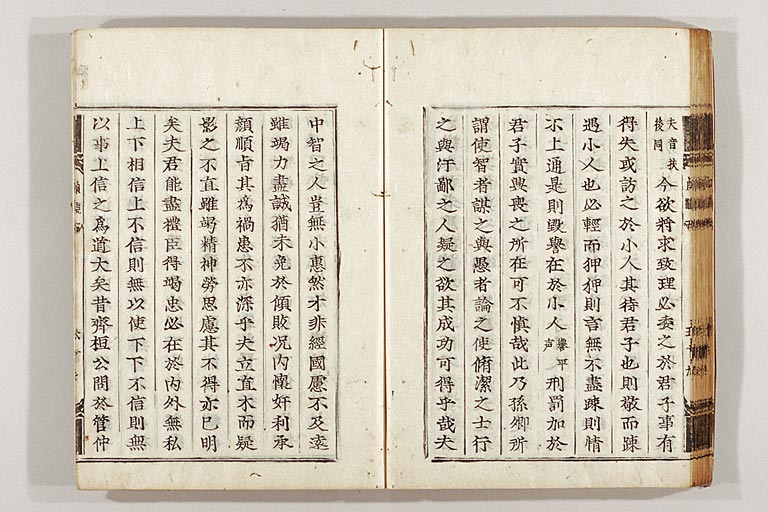 夫音扶後同今欲將求致理必委之於君子事有
得失或訪之於小人其待君子也則敬而踈
遇小人也必輕而狎狎則言無不盡踈則情
不上通是則毀譽在於小人譽平声刑罰加於
君子實興喪之所在可不慎哉此乃孫卿所
謂使智者謀之與愚者論之使脩潔之士行
之與汙鄙之人疑之欲其成功可得乎哉夫
中智之人豈無小惠然才非經國慮不及遠
雖竭力盡誠猶未免於傾敗况内懷奸利承
顔順旨其為禍患不亦深乎夫立直木而疑
影之不直雖竭精神勞思慮其不得亦已明
矣夫君能盡禮臣得竭忠必在於内外無私
上下相信上不信則無以使下下不信則無
以事上信之為道大矣昔齊桓公問於管仲